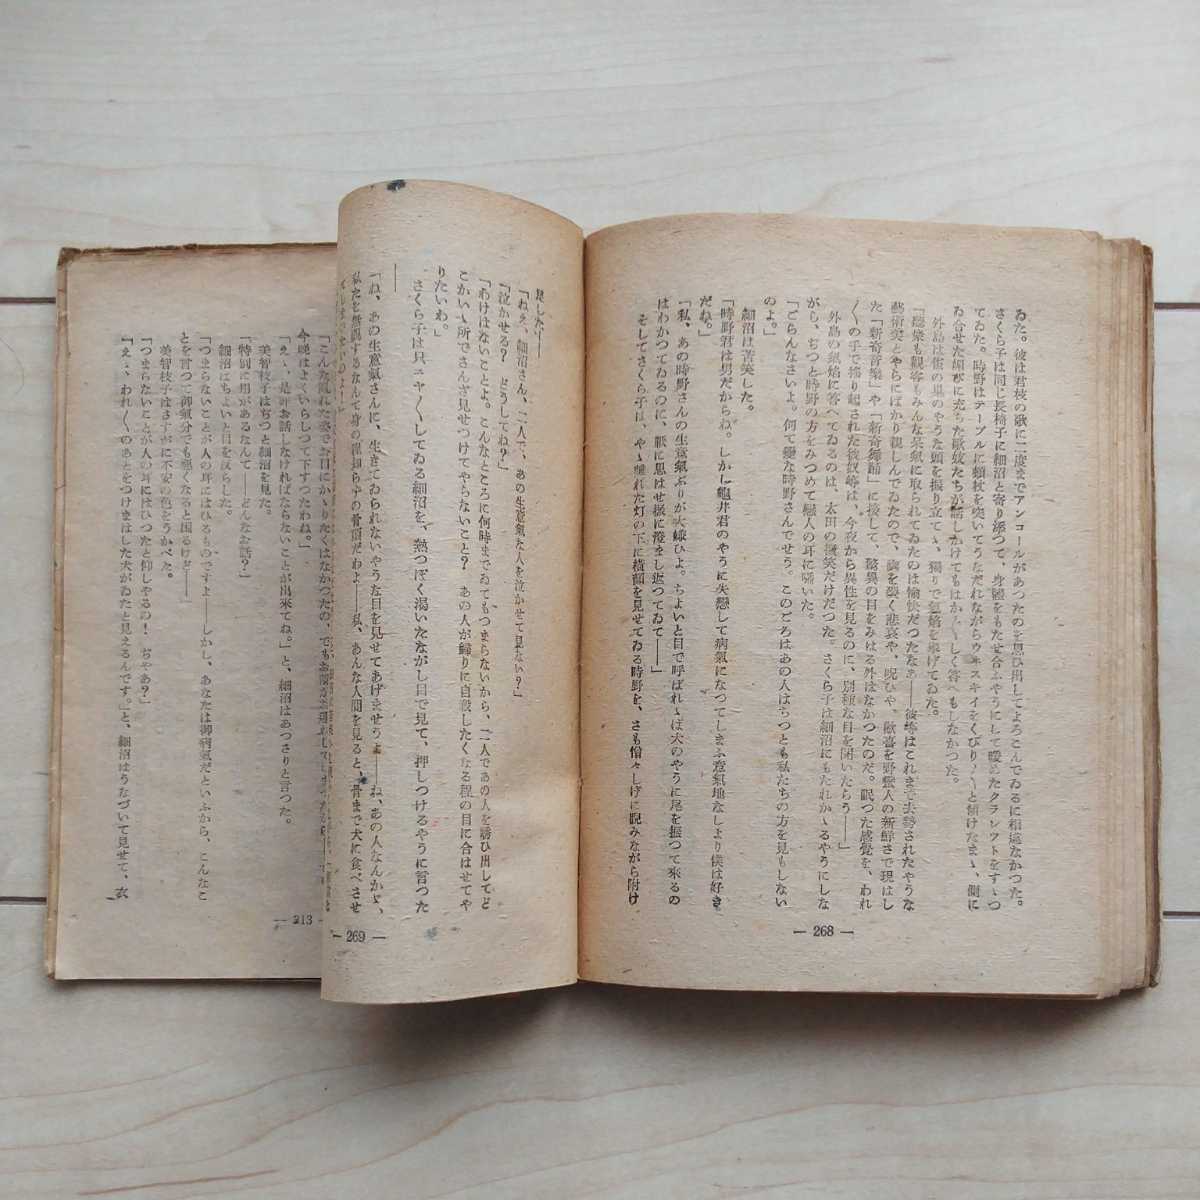 ゐた。彼は君枝の歌に二度までアンコールがあつたのを思ひ出してよろこんでゐるに相違なかつた。
さくら子は同じ長椅子に細沼と寄り添つて、身體をもたせ合ふやうにして暖めたクランツトをすゝつ
てゐた。時野はテーブルに頬杖を突いてうなだれながらウヰスキイをぐびり〳〵と傾けたまゝ、側に
ゐ合せた媚びに充ちた歌妓たちが話しかけてもはか〴〵しく答へもしなかつた。
外島は雀の巣のやうな頭を振り立てゝ、獨りで氣焰を擧げてゐた。
「聽衆も觀客もみんな呆氣に取られてゐたのは愉快だつたなあ――彼等はこれまで去勢されたやうな
藝術笑とやらにばかり親しんでゐたので、胸を裂く悲哀や、呪ひや、歡喜を野蠻人の新鮮さで現はし
た「新奇音樂」や「新奇舞踊」に接して、驚異の目をみはる外はなかつたのだ。眠つた感覺を、われ
〳〵の手で搖り起された彼奴等は、今夜から異性を見るのに、別樣な目を開いたらう――」
外島の氣焰に答へてゐるのは、太田の微笑だけだつた。さくら子は細沼にもたれかゝるやうにしな
がら、ぢつと時野の方をみつめて戀人の耳に囁いた。
「ごらんなさいよ。何て變な時野さんでせう。このごろはあの人はちつとも私たちの方を見もしない
のよ。」
細沼は苦笑した。
「時野君は男だからね。しかし龜井君のやうに失戀して病氣になつてしまふ意氣地なしより僕は好き
だね。」
「私、あの時野さんの生意氣ぶりが大嫌ひよ。ちよいと目で呼ばれゝば犬のやうに尾を振つて來るの
はわかつてゐるのに、厭に思はせ振に澄まし返つてゐて――」
そしてさくら子は、やゝ離れた灯の下に橫顏を見せてゐる時野を、さも憎々しげに睨みながら附け
― 268 ―
足した――
「ねえ、細沼さん、二人で、あの生意氣な人を泣かせて見ない?」
「泣かせる? どうしてね?」
「わけはないことよ。こんなところに何時までゐてもつまらないから、二人であの人を誘ひ出してど
こかいゝ所でさんざ見せつけてやらないこと? あの人が歸りに自殺したくなる程の目に合はせてや
りたいわ。
さくら子は只ニヤ〳〵してゐる細沼を、熱つぽく渴いたながし目で見て、押しつけるやうに言つた
――
「ね、あの生意氣さんに、生きてゐられないやうな目を見せてあげませうよ――ね、あの人なんかゝ、
私たを無視するなんて身の程知らずの骨頂だわよ――私、あんな人間を見ると、骨まで犬に食べさせ
― 269 ―
「こんな亂れた姿でお目にかゝりたくはなかつたの、でも
今晩はよくいらしつて下すつたわね。」
「えゝ、是非お話しなければならないことが出來てね。」と、細沼はあつさりと言つた。
美智枝子はぢつと細沼を見た。
「特別に用があるなんて――どんなお話?」
細沼はちよいと目を反らした。
「つまらないことが人の耳にはひるものですよ――しかし、あなたは御病氣だといふから、こんなこ
とを言つて御氣分でも惡くなると困るけど――」
美智枝子はさすがに不安の色をうかべた。
「つまらないことが人の耳にはひつたと仰しやるの! ぢやあ?」
「えゝ、われ〳〵のあとをつけまはした犬がゐたと見えるんです。」と、細沼はうなづいて見せて、衣
― 213 ―